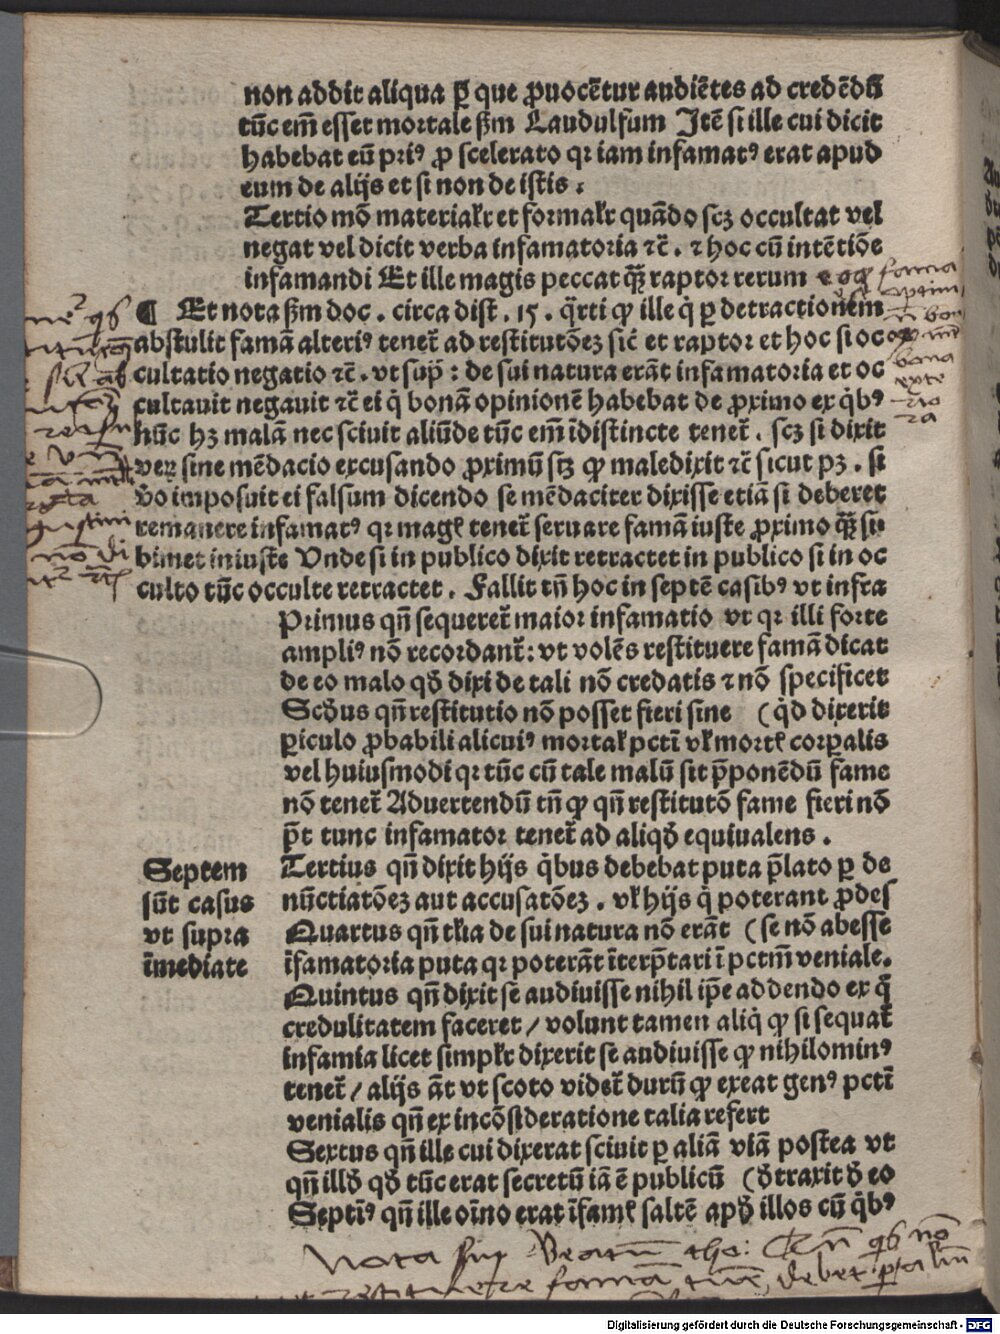 non addit aliqua ꝑ que ꝓuocētur audiētes ad credēdū
tūc em̄ esset mortale ẜm Landulfum Itē si ille cui dicit
habebat eū priꝰ ꝓ scelerato qr iam infamatꝰ erat apud
eum de alijs et si non de istis.
Tertio mō materialr et formalr quādo scꝫ occultat vel
negat vel dicit verba infamatoria ⁊c̄. ⁊ hoc cū intētiōe
infamandi Et ille magis peccat qꝫ̄ raptor rerum
¶ Et nota ẜm doc. circa dist. 15. q̄rti ꝙ ille q̇ ꝑ detractionem
abstulit famā alteriꝰ tenet̄ ad restitutōeꝫ sic̄ et raptor et hoc si oc
cultatio negatio ⁊c̄. vt sup̄: de sui natura erāt infamatoria et oc
cultauit negauit ⁊c̄ ei q̇ bonā opinionē habebat de ꝓximo ex q̇bꝰ
hūc hꝫ malā nec sciuit aliūde tūc em̄ īdistincte tenet̄. scꝫ si dixit
veꝝ sine mēdacio excusando ꝓximū stꝫ ꝙ maledixit ⁊c̄ sicut pꝫ. si
v̊o imposuit ei falsum dicendo se mēdaciter dixisse etiā si deberet
remanere infamatꝰ qr magꝭ tenet̄ seruare famā iuste ꝓximo qꝫ̄ si
bimet iniuste Unde si in publico dixit retractet in publico si in oc
culto tūc occulte retractet. Fallit tn̄ hoc in septē casibꝰ vt infra
Primus qn̄ sequeret̄ maior infamatio vt qr illi forte
ampliꝰ nō recordant̄: vt volēs restituere famā dicat
de eo malo qd̄ dixi de tali nō credatis ⁊ nō specificet
Scd̄us qn̄ restitutio nō posset fieri sine (q̇d dixerit
ꝑiculo ꝓbabili alicuiꝰ mortal' pctī vl' mortꝭ corꝑalis
vel huiusmodi qr tūc cū tale malū sit p̄ponēdū fame
nō tenet̄ Aduertendū tn̄ ꝙ qn̄ restitutō fame fieri nō
p̄t tunc infamator tenet̄ ad aliqd̄ equiualens.
Septem
sūt casus
vt supra
īmediate
Tertius qn̄ dixit hijs q̇bus debebat puta p̄lato ꝑ de
nūctiatōeꝫ aut accusatōeꝫ. vl' hijs q̇ poterant ꝓdes
Quartus qn̄ tl'ia de sui natura nō erāt (se nō abesse
īfamatoria puta qr poterāt īterp̄tari ī pctm̄ veniale.
Quintus qn̄ dixit se audiuisse nihil ip̄e addendo ex q̄
credulitatem faceret / volunt tamen aliq̇ ꝙ si sequat̄
infamia licet simpl'r dixerit se audiuisse ꝙ nihilominꝰ
tenet̄ / alijs āt vt scoto videt̄ durū ꝙ exeat genꝰ pctī
venialis qn̄ ex incōsideratione talia refert
Sextus qn̄ ille cui dixerat sciuit ꝑ aliā viā postea vt
qn̄ illd̄ qd̄ tūc erat secretū iā ē publicū (d̄traxit d̄ eo
Septīꝰ qn̄ ille oīno erat īfamꝭ saltē apd̄ illos cū q̇bꝰ
Nota
famā
debet
Digitalisierung gefördert durch die Deutsche Forschungsgemeinschaft - DFG